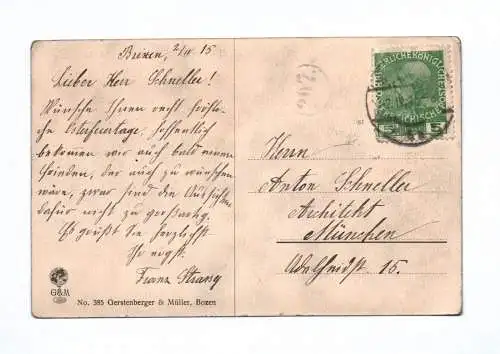 Brixen, 2/IV 15
Lieber Herr Schneller!
Wünsche Ihnen recht fröhliche
Osterfeiertage, hoffentlich
bekommen wir auch bald einen
Frieden, der auch zu wünschen
wäre, zwar sind die Aussichten
dafür nicht zu
Es grüßt Sie herzlichst
Ihr ergst.
Franz Strany
G&M
No. 385 Gerstenberger & Müller, Bozen
(206)
5 5
Herrn
Anton Schneller
Architekt
München
Adelheidst 15.